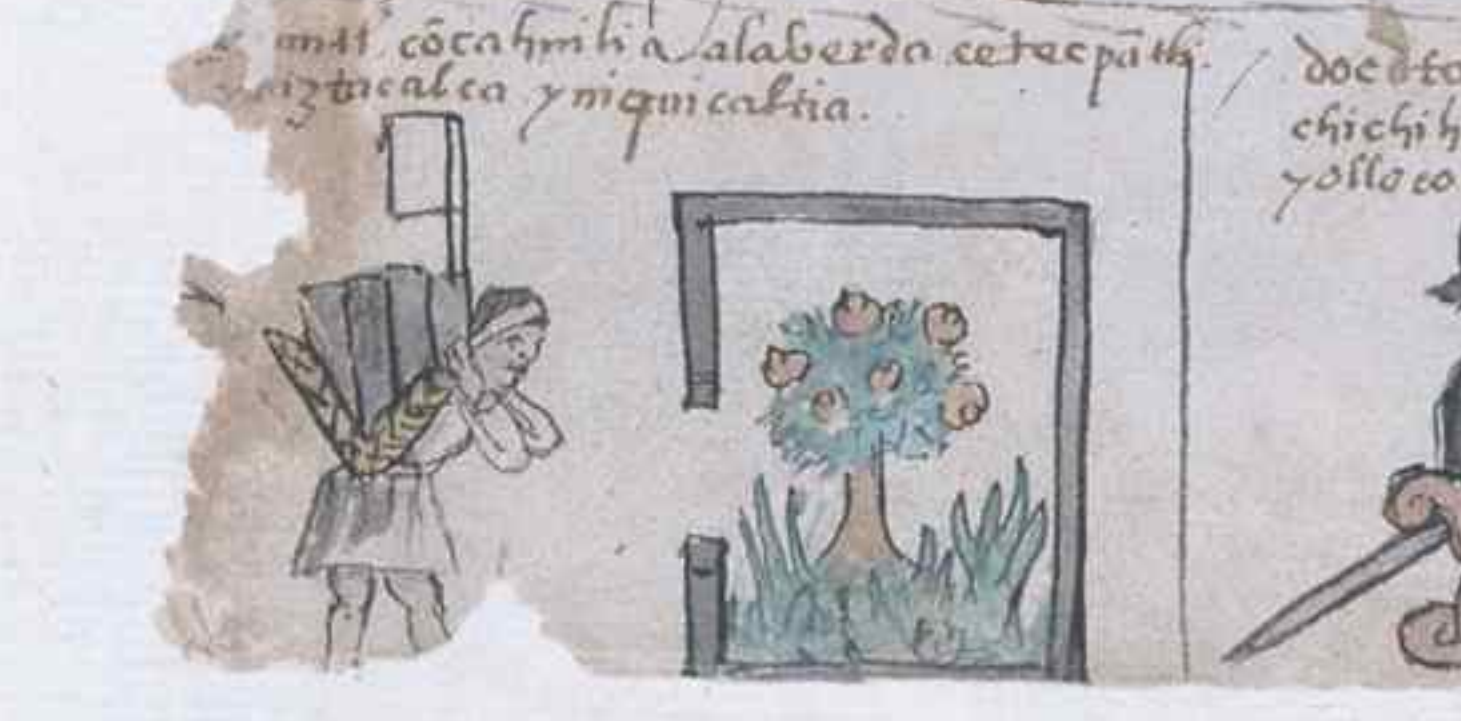 cōcahmihi a alaberda cētecpātli.
iztacalca yniquicaltia.
doc
chichih
yolloco